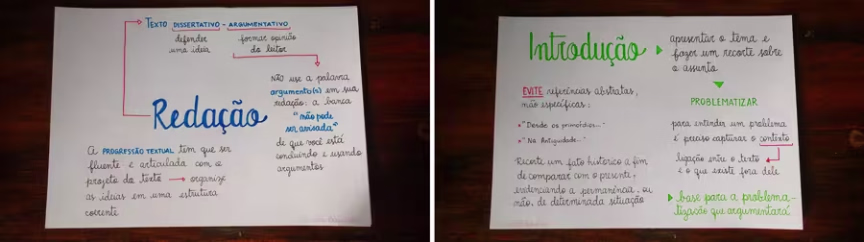 TEXTO DISSERTATIVO - ARGUMENTATIVO
defender
uma ideia
formar opinião
do leitor
Redação
NÃO use a palavra
argumento(s) em sua
redação: a banca
"não pode
ser avisada"
de que você está
conduzindo e usando
argumentos
A PROGRESSÃO TEXTUAL tem que ser
fluente e articulada com o
projeto do texto → organize
as ideias em uma estrutura
coerente
Introdução
apresentar o tema e
fazer um recorte sobre
o assunto
EVITE referências abstratas,
não específicas:
"Desde os primórdios..."
"Na Antiguidade..."
Recorte um fato histórico a fim
de comparar com o presente,
evidenciando a permanência, ou
não, de determinada situação
PROBLEMATIZAR
para entender um problema
é preciso capturar o contexto
ligação entre o texto
e o que existe fora dele
base para a problema-
tização que argumentará